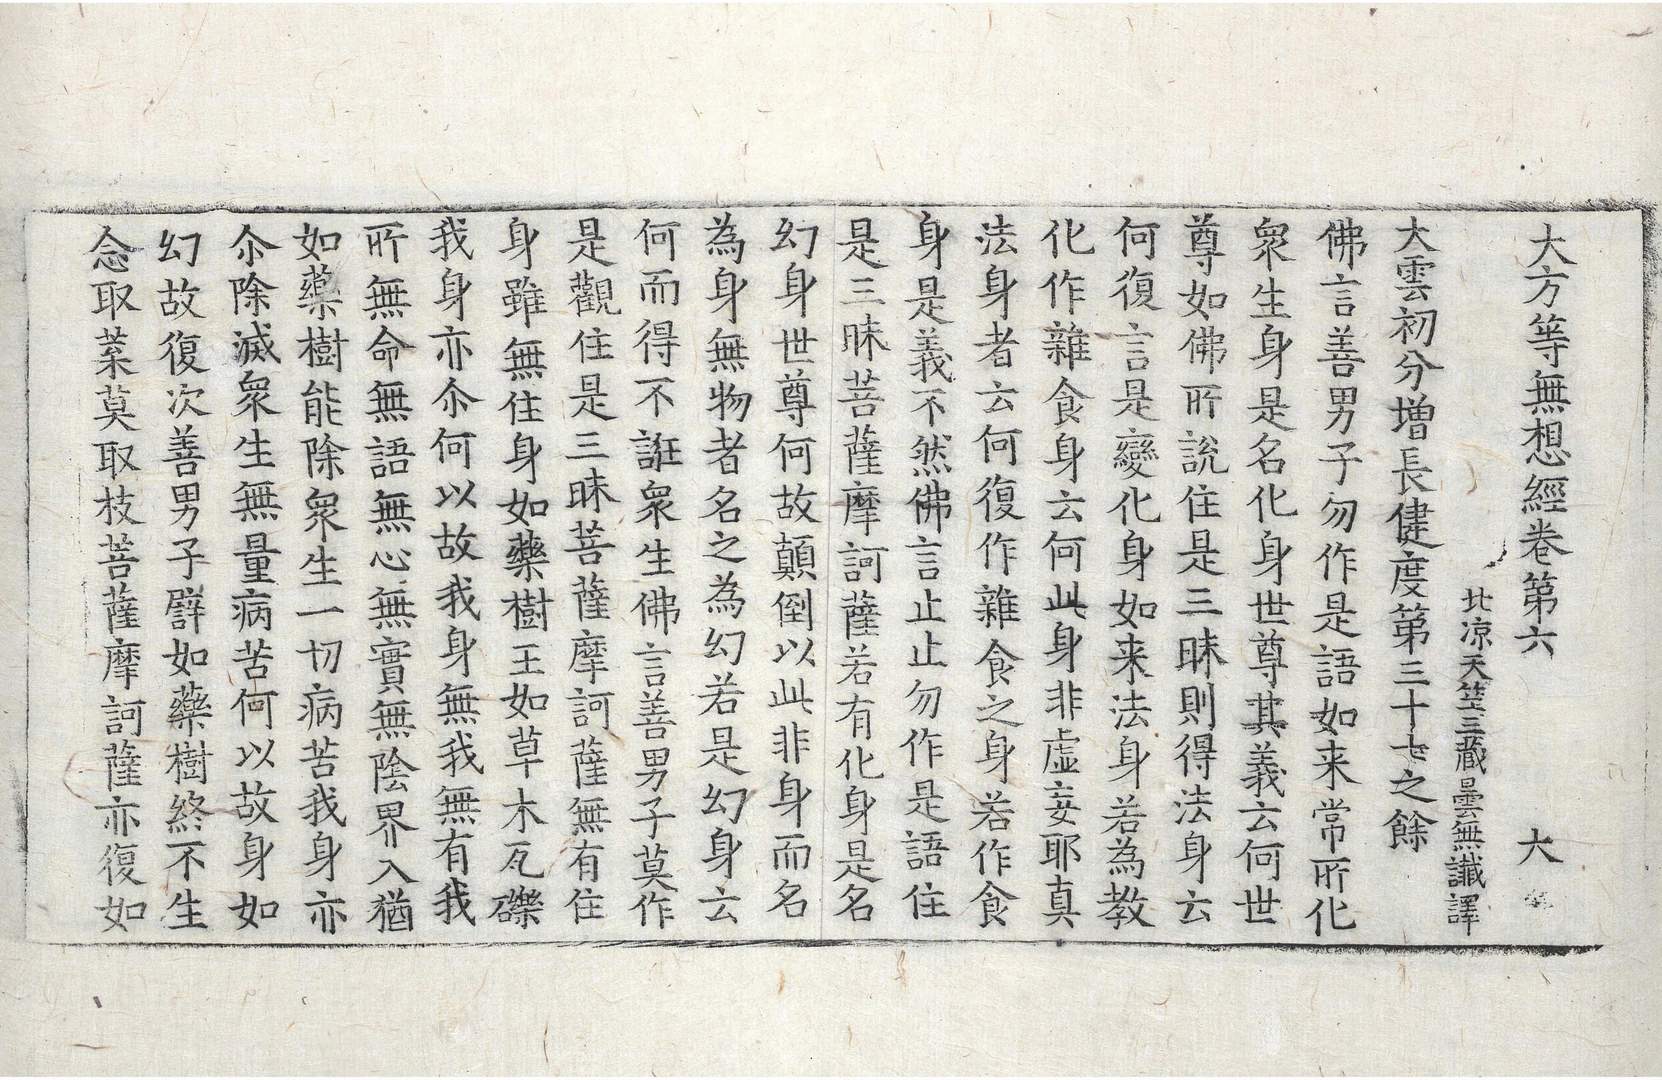 大方等無想經卷第六　大
北涼天竺三藏曇無讖譯
大雲初分增長健度第三十七之餘
佛言善男子勿作是語如来常所化
衆生身是名化身世尊其義云何世
尊如佛所說住是三昧則得法身云
何復言是變化身如来法身若為教
化作雜食身云何此身非虛妄耶真
法身者云何復作雜食之身若作食
身是義不然佛言止止勿作是語住
是三昧菩薩摩訶薩若有化身是名
幻身世尊何故顛倒以此非身而名
為身無物者名之為幻若是幻身云
何而得不誑衆生佛言善男子莫作
是觀住是三昧菩薩摩訶薩無有住
身雖無住身如藥樹王如草木瓦礫
我身亦尒何以故我身無我無有我
所無命無語無心無實無陰界入猶
如藥樹能除衆生一切病苦我身亦
尒除滅衆生無量病苦何以故身如
幻故復次善男子譬如藥樹終不生
念取葉莫取枝菩薩摩訶薩亦復如